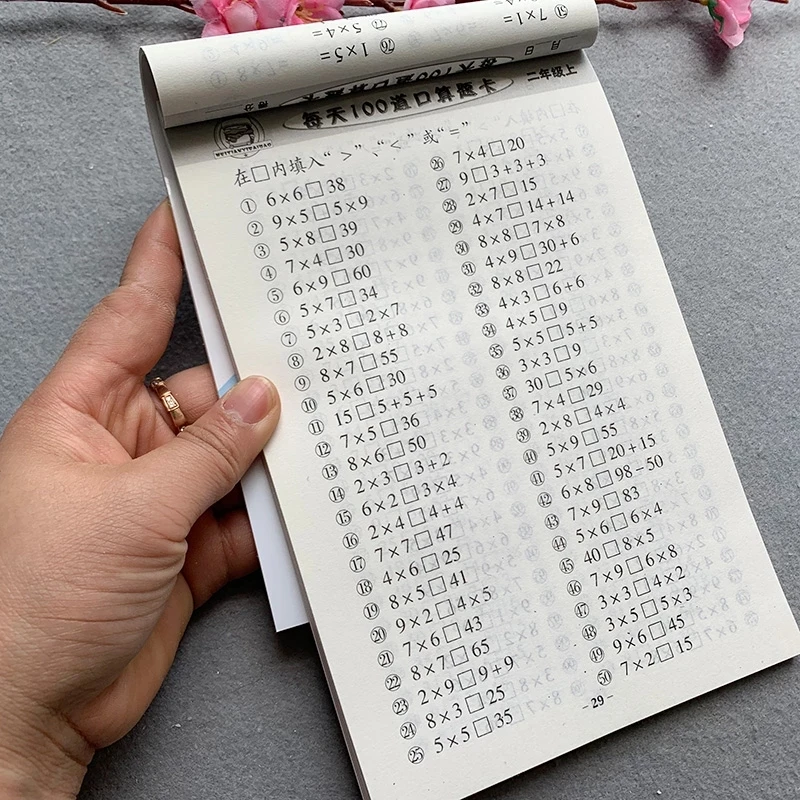 二年级上
每天100道口算题卡
在□内填入“ > ”、“ < ” 或“ = ”
① 6×6□38
② 9×5□5×9
③ 5×8□39
④ 7×4□30
⑤ 6×9□60
⑥ 5×7□34
⑦ 5×3□2×7
⑧ 2×8□8+8
⑨ 8×7□55
⑩ 5×6□30
⑪ 15□5+5+5
⑫ 7×5□36
⑬ 8×6□50
⑭ 2×3□3+2
⑮ 6×2□3×4
⑯ 2×4□4+4
⑰ 7×7□47
⑱ 4×6□25
⑲ 8×5□41
⑳ 9×2□4×5
㉑ 7×6□43
㉒ 8×7□65
㉓ 2×9□9+9
㉔ 8×3□25
㉕ 5×5□35
㉖ 7×4□20
㉗ 9□3+3+3
㉘ 2×7□15
㉙ 4×7□14+14
㉚ 8×8□7×8
㉛ 4×9□30+6
㉜ 8×8□22
㉝ 4×3□6+6
㉞ 4×5□9
㉟ 5×5□5+5
㊱ 3×3□9
㊲ 30□5×6
㊳ 7×4□29
㊴ 2×8□4×4
㊵ 5×9□55
㊶ 5×7□20+15
㊷ 6×8□98-50
㊸ 7×9□83
㊹ 5×6□6×4
㊺ 40□8×5
㊻ 7×9□6×8
㊼ 3×3□4×2
㊽ 3×5□5×3
㊾ 9×6□45
㊿ 7×2□15
- 29 -